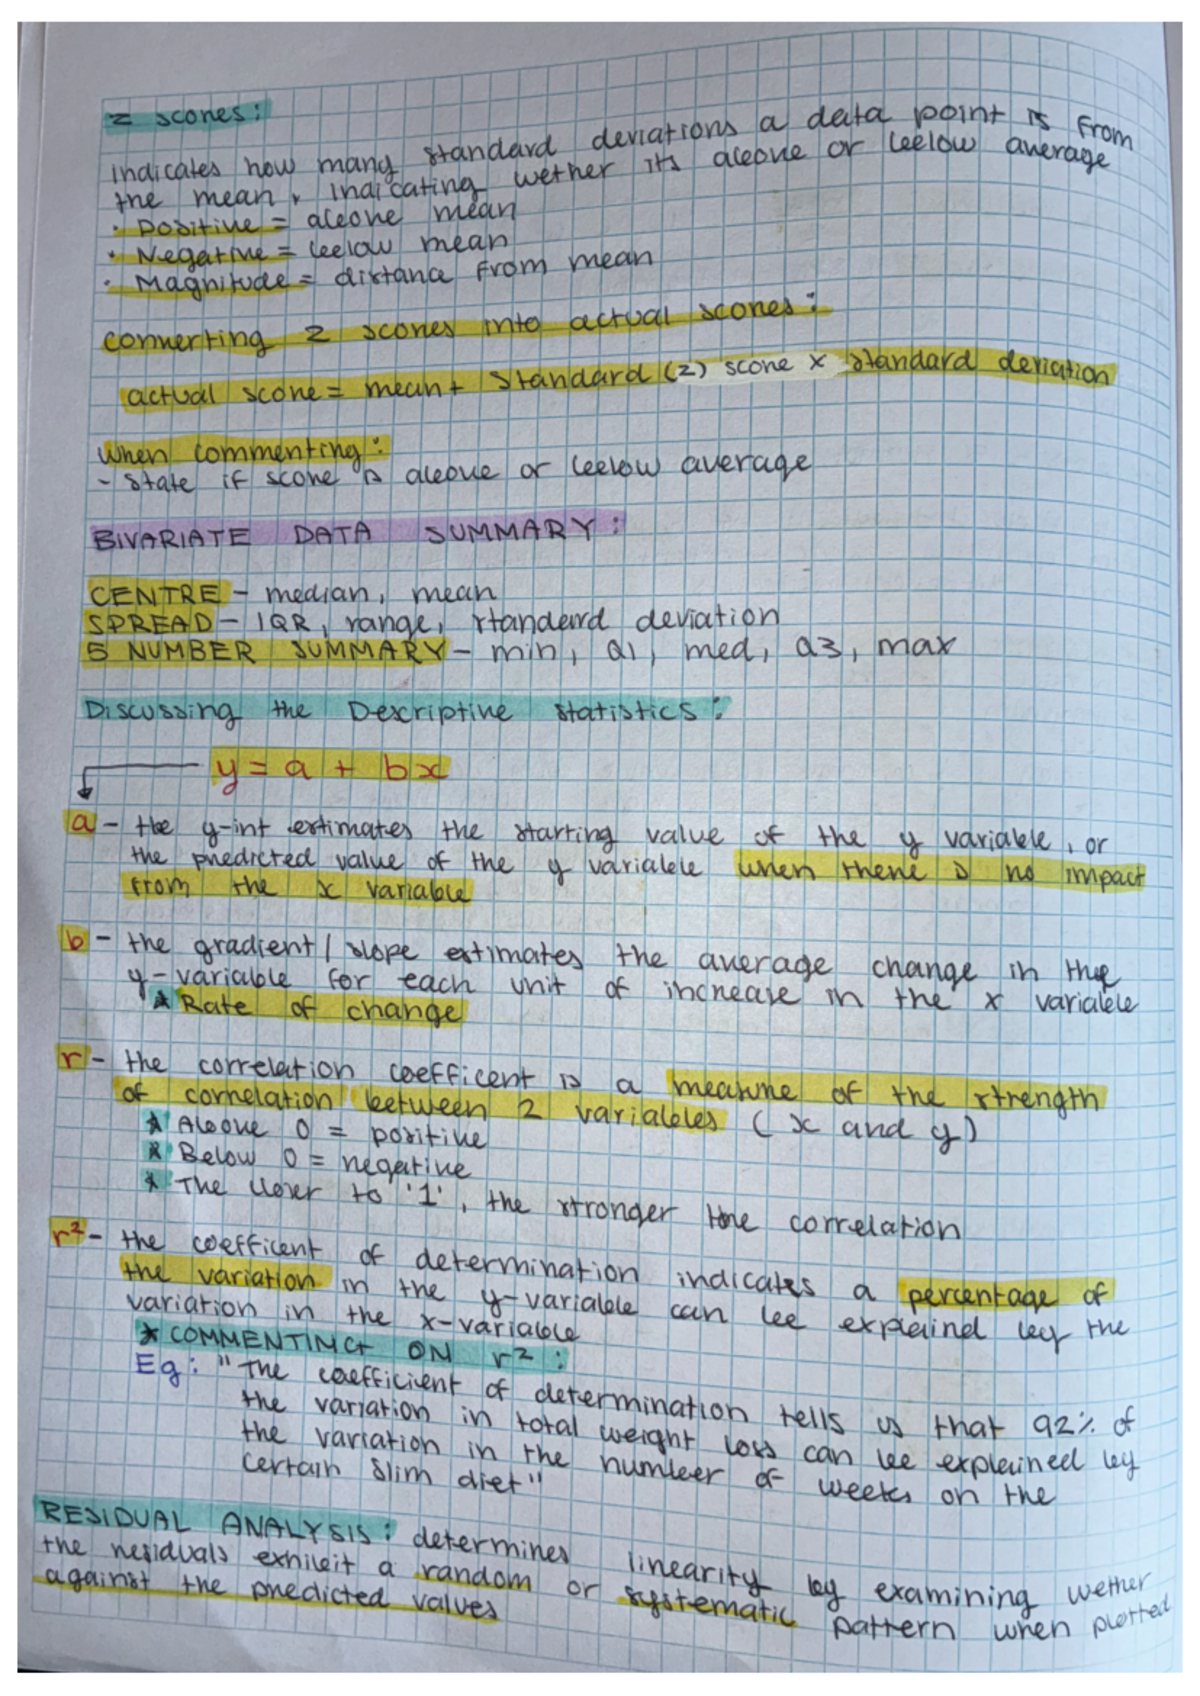 z scores:
indicates how many standard deviations a data point is from
the mean, indicating wether its above or below average
• Positive = above mean
• Negative = below mean
• Magnitude = distance from mean
converting z scores into actual scores:
actual score = mean + standard (z) score × standard deviation
when commenting:
- state if score is above or below average
BIVARIATE DATA SUMMARY:
CENTRE - median, mean
SPREAD - IQR, range, standard deviation
5 NUMBER SUMMARY - min, Q1, med, Q3, max
Discussing the Descriptive statistics:
y = a + bx
a - the y-int estimates the starting value of the y variable, or
the predicted value of the y variable when there is no impact
from the x variable
b - the gradient / slope estimates the average change in the
y-variable for each unit of increase in the x variable
* Rate of change
r - the correlation coefficent is a measure of the strength
of correlation between 2 variables (x and y)
* Above 0 = positive
* Below 0 = negative
* The closer to '1', the stronger the correlation
r² - the coefficent of determination indicates a percentage of
the variation in the y-variable can be explained by the
variation in the x-variable
* COMMENTING ON r²:
Eg: "The coefficient of determination tells us that 92% of
the variation in total weight loss can be explained by
the variation in the number of weeks on the
certain slim diet"
RESIDUAL ANALYSIS: determines linearity by examining wether
the residuals exhibit a random or systematic pattern when plotted
against the predicted values